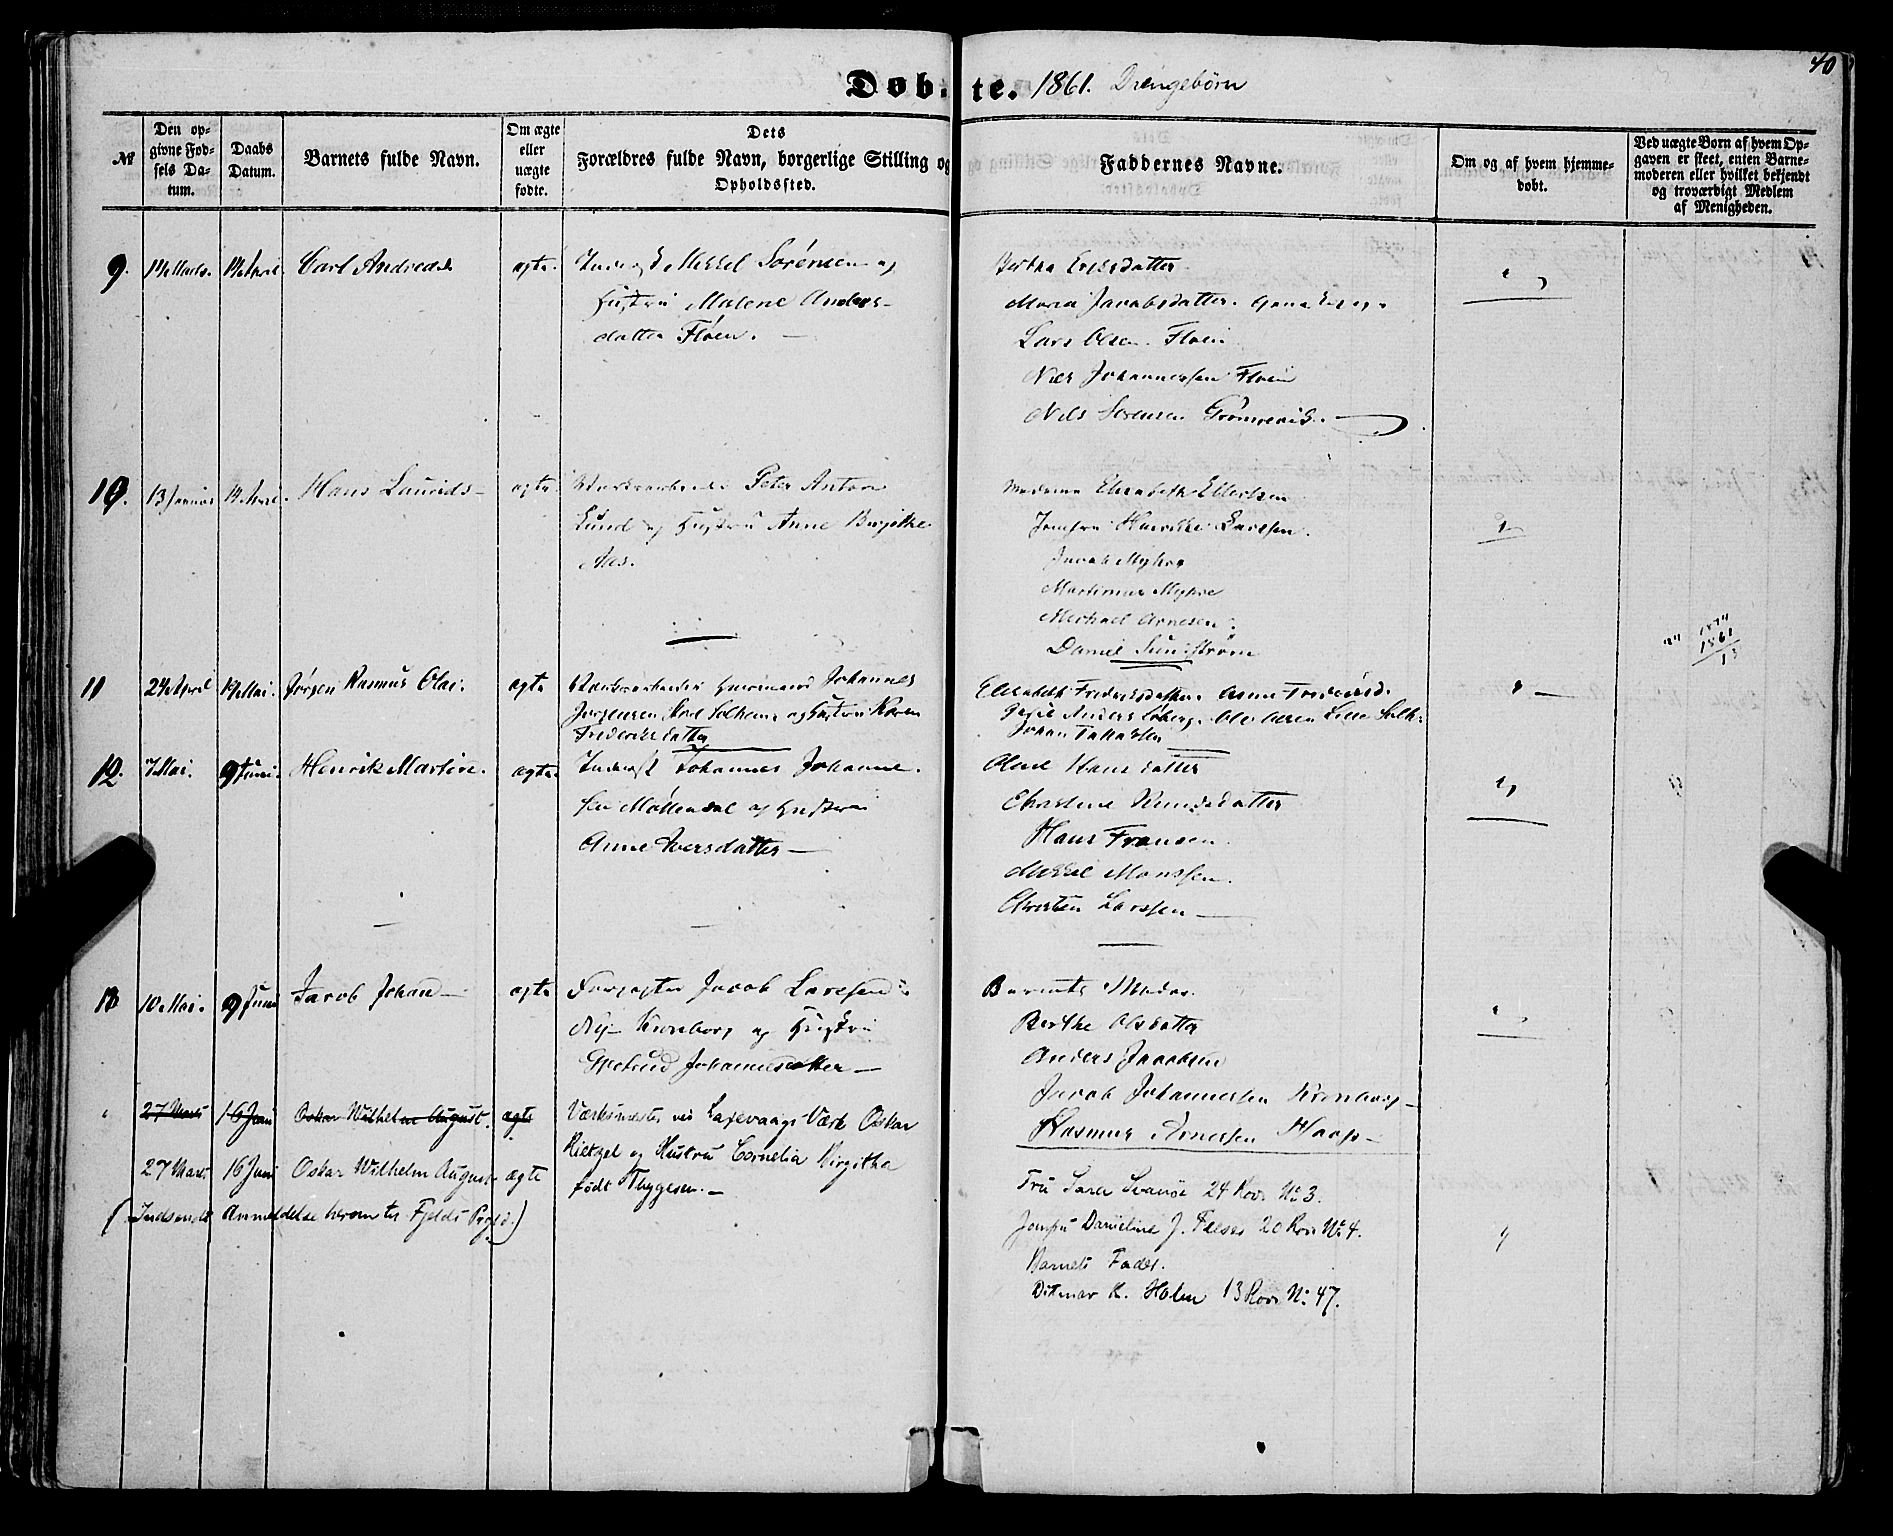 40
Døbte. 1861. Drengebørn
№
Den opgivne Fødsels Datum.
Daabs Datum.
Barnets fulde Navn.
Om ægte eller uægte fødte.
Dets Forældres fulde Navn, borgerlige Stilling og Opholdssted.
Faddernes Navne.
Om og af hvem hjemmedøbt.
Ved uægte Børn af hvem Opgaven er skeet, enten Barnemoderen eller hvilket bekjendt og troværdigt Medlem af Menigheden.
9. 14 Marts. 14 April Carl Andreas ægte Inderst Mikkel Sørensen og
Hustru Malene Anders-
datter Fløen. —
Bertha Eriksdatter
Maria Jacobsdatter.
Lars Olsen Fløen
Nils Johannessen Fløen
Nils Sørensen Grønnevik.
10. 13 Januar 14 April. Hans Laurids ægte Peter Anton
Lund og Hustru Anne Birgitte
Aas.
Madame Elisabeth Ellertsen
Jomfru Henrikke Larssen.
Jacob Myhre
Martinus Myhre
Michael Arnesen
Daniel Sundstrøm
1874
1861
13
11 24 April 19 Mai. Jørgen Rasmus Olai. ægte Johannes
Jørgensen Solheim og Hustru Karen
Frederiksdatter
Elisabeth Frederiksdatter. Anne Frederiksd.
Anders Løberg. Ole Olsen Lille Solh.
Johan
12. 7 Mai. 9 Juni. Henrik Martin. ægte Inderst Johannes Johanne-
sen Møllendal og Hustru
Anne Iversdatter —
Oline Hansdatter
Christine Knudsdatter
Hans Fransen.
Mikkel Monssen.
Christen Larssen —
13 10 Mai. 9 Juni Jacob Johan — ægte Forpagter Jacob Larssen
Ny Kronborg og Hustru
Gjertrud Johannesdatter —
Barnets Moder.
Berthe Olsdatter
Anders Jacobsen
Jacob Johannessen Kronborg —
Rasmus Arnesen Haap —
27 Marts 16 Juni Oskar Wilhelm August. ægte
Værksmester ved Laxevaags Værk Oskar
Rietzel og Hustru Cornelia Birgitha
født Thygesen. —
27 Marts 16 Juni Oskar Wilhelm August ægte
(Indsendt Anmeldelse herom til Fjelds Prgjd.)
Fru Sara Svanøe 24 Rode №3.
Jomfru Danieline J. Faeser 20 Rode №4.
Barnets Fader.
Ditmar K. Holm 13 Rode №47.